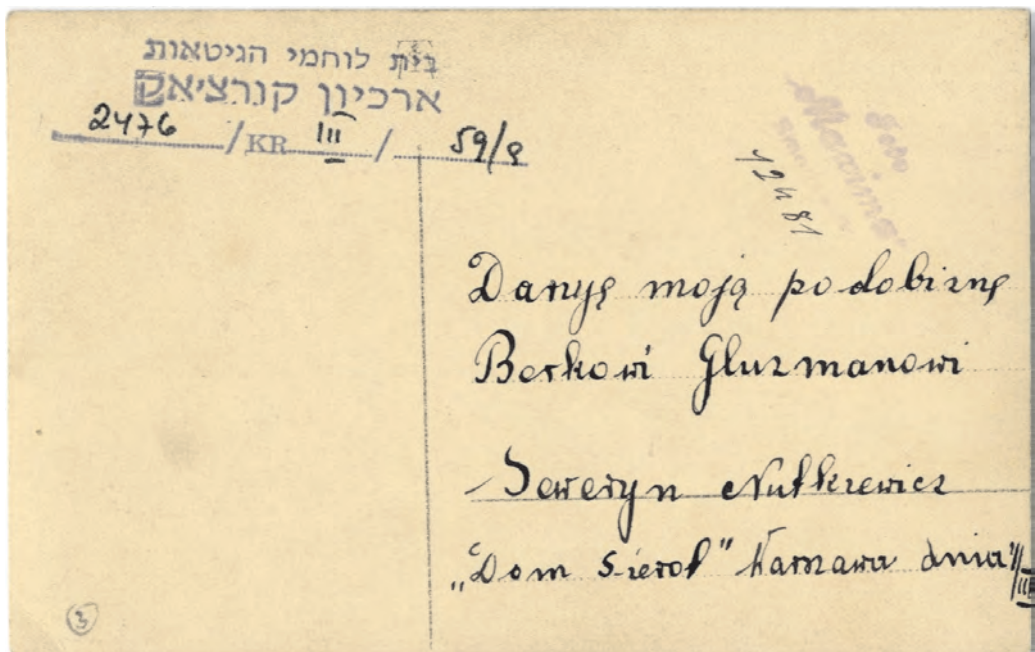 בית לוחמי הגיטאות
ארכיון קורצ'אק
2476 / KR III / 59/9
Foto
"Maxima"
12481
Daryę moją podobiznę
Berkowi Gluzmanowi
Seweryn Nutkiewicz
„Dom Sierot" Warszawa dnia
3